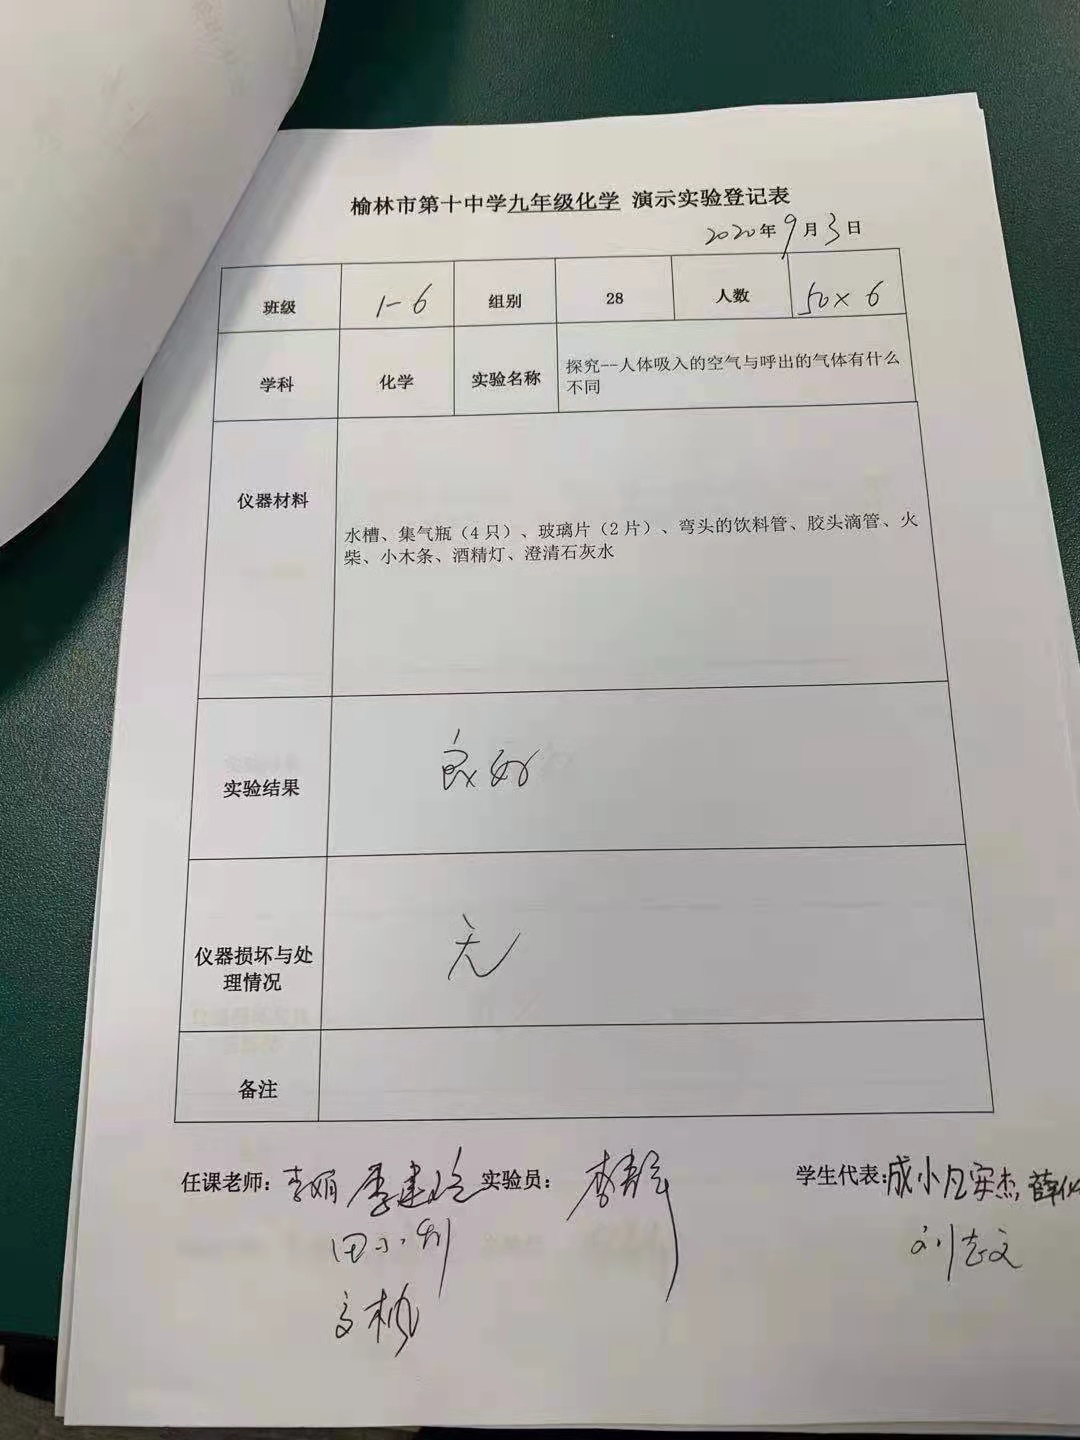 榆林市第十中学九年级化学 演示实验登记表
2020年9月3日
班级 1-6 组别 28 人数 50×6
学科 化学 实验名称 探究--人体吸入的空气与呼出的气体有什么
不同
仪器材料
水槽、集气瓶（4只）、玻璃片（2片）、弯头的饮料管、胶头滴管、火
柴、小木条、酒精灯、澄清石灰水
实验结果 良好
仪器损坏与处
理情况
无
备注
任课老师：李娟 李建 实验员：李 学生代表：成小凡 实杰 薛
田小利 刘志文